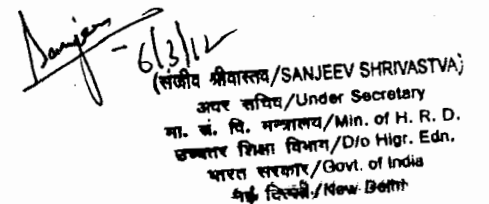 Sanjeev
- 6/3/12
(संजीव श्रीवास्तव/SANJEEV SHRIVASTVA)
अवर सचिव/Under Secretary
मा. सं. वि. मन्त्रालय/Min. of H. R. D.
उच्चतर शिक्षा विभाग/D/o Higr. Edn.
भारत सरकार/Govt. of India
नई दिल्ली/New Delhi